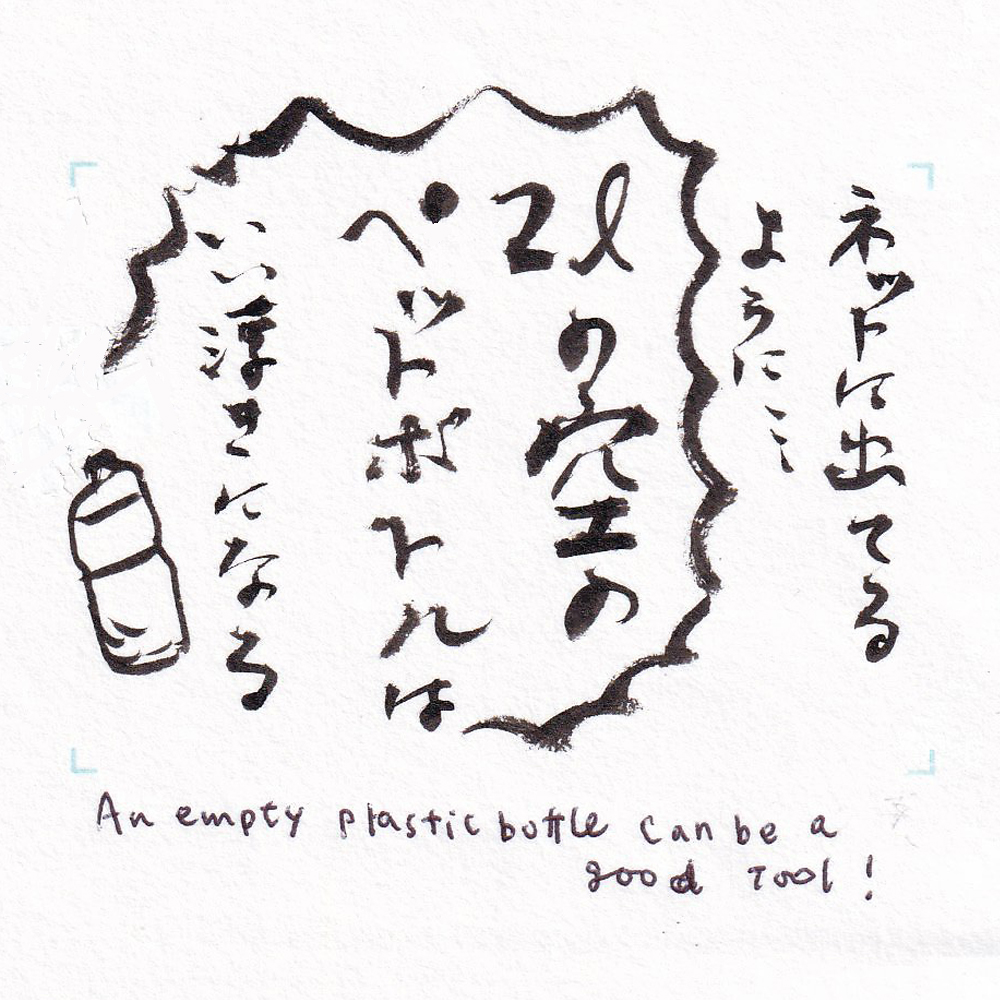 ネットに出てる
ように…
2ℓの空の
ペットボトルは
いい浮きになる
An empty plastic bottle can be a
good tool!